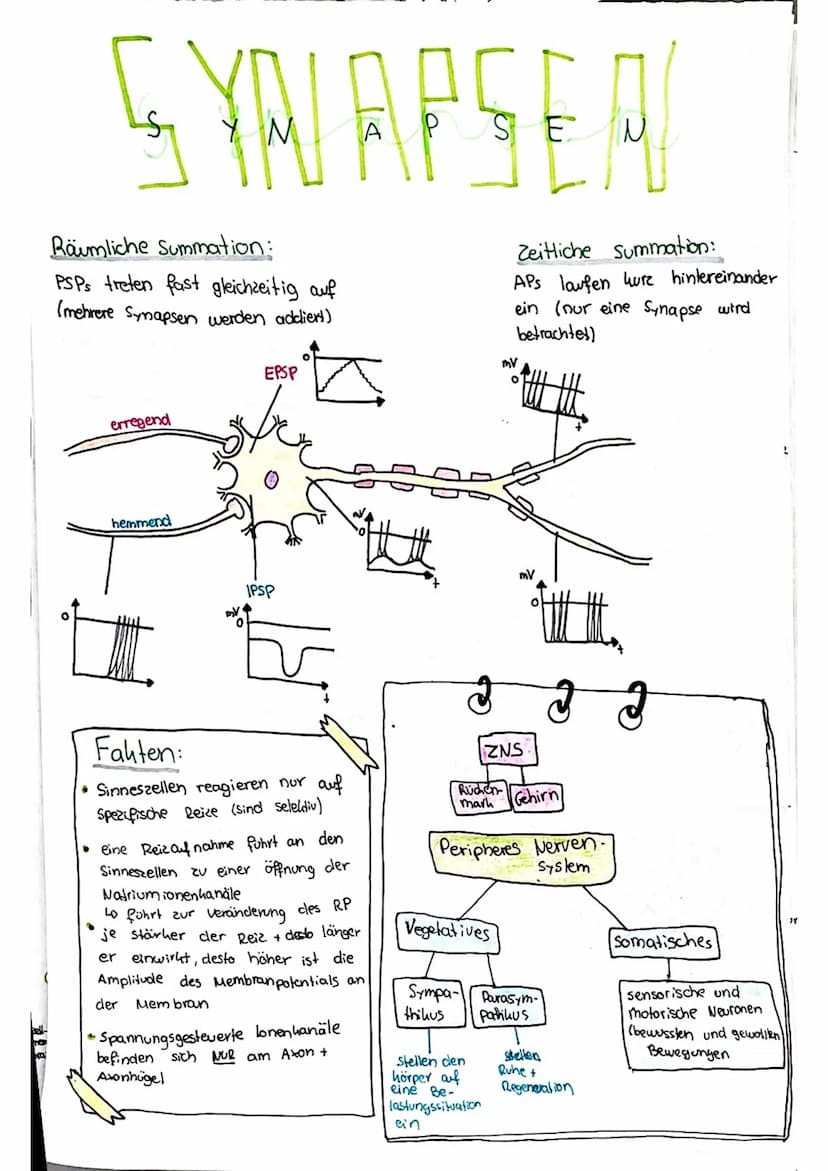 SYNAPSEN
SYNAPSEN
Räumliche Summation:
PSPs treten fast gleichzeitig auf
(mehrere Synapsen werden addiert)
Zeitliche Summation:
APs laufen kurz hintereinander
ein (nur eine Synapse wird
betrachtet)
EPSP
0
mV
0
t
erregend
hemmend
mV
0
t
IPSP
0
mV
0
t
mV
0
t
Fakten:
• Sinneszellen reagieren nur auf
spezifische Reize (sind selektiv)
• eine Reizaufnahme führt an den
Sinneszellen zu einer Öffnung der
Natriumionenkanäle
↳ führt zur Veränderung des RP
• je stärker der Reiz + desto länger
er einwirkt, desto höher ist die
Amplitude des Membranpotentials an
der Membran
• Spannungsgesteuerte Ionenkanäle
befinden sich NUR am Axon +
Axonhügel
ZNS
Rücken
mark
Gehirn
Peripheres Nerven-
system
Vegetatives
somatisches
Sympa-
thikus
Parasym-
pathikus
sensorische und
motorische Neuronen
(bewussten und gewollten
Bewegungen
stellen den
körper auf
eine Be-
lastungssituation
ein
stellen
Ruhe +
Regeneration